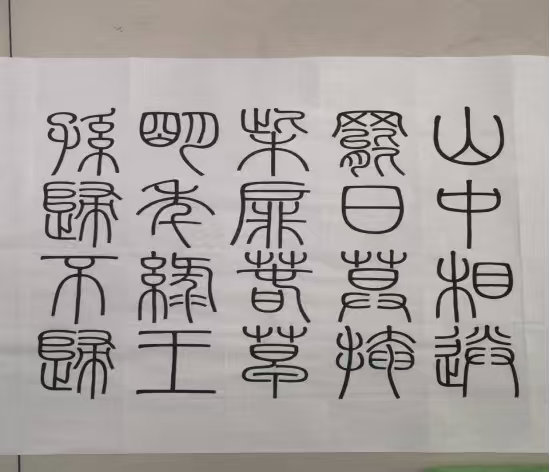 山中相送
罷日暮掩
柴扉春草
明年綠王
孫歸不歸